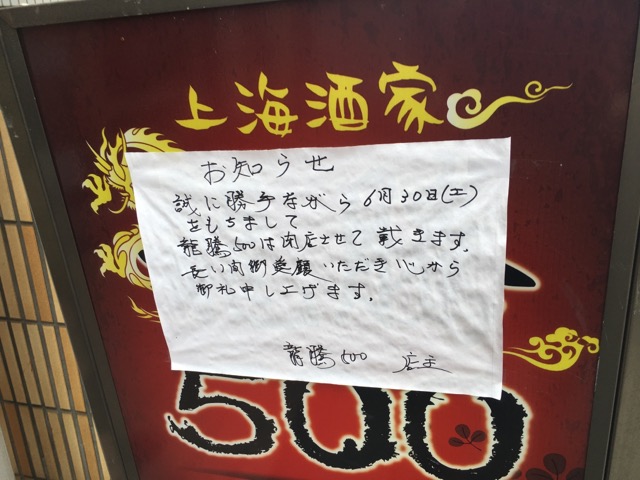 上海酒家
お知らせ
誠に勝手ながら 6月30日(土)
をもちまして
龍騰500は閉店させて戴きます。
長い間御愛顧いただき心から
御礼申し上げます。
龍騰500 店主
500